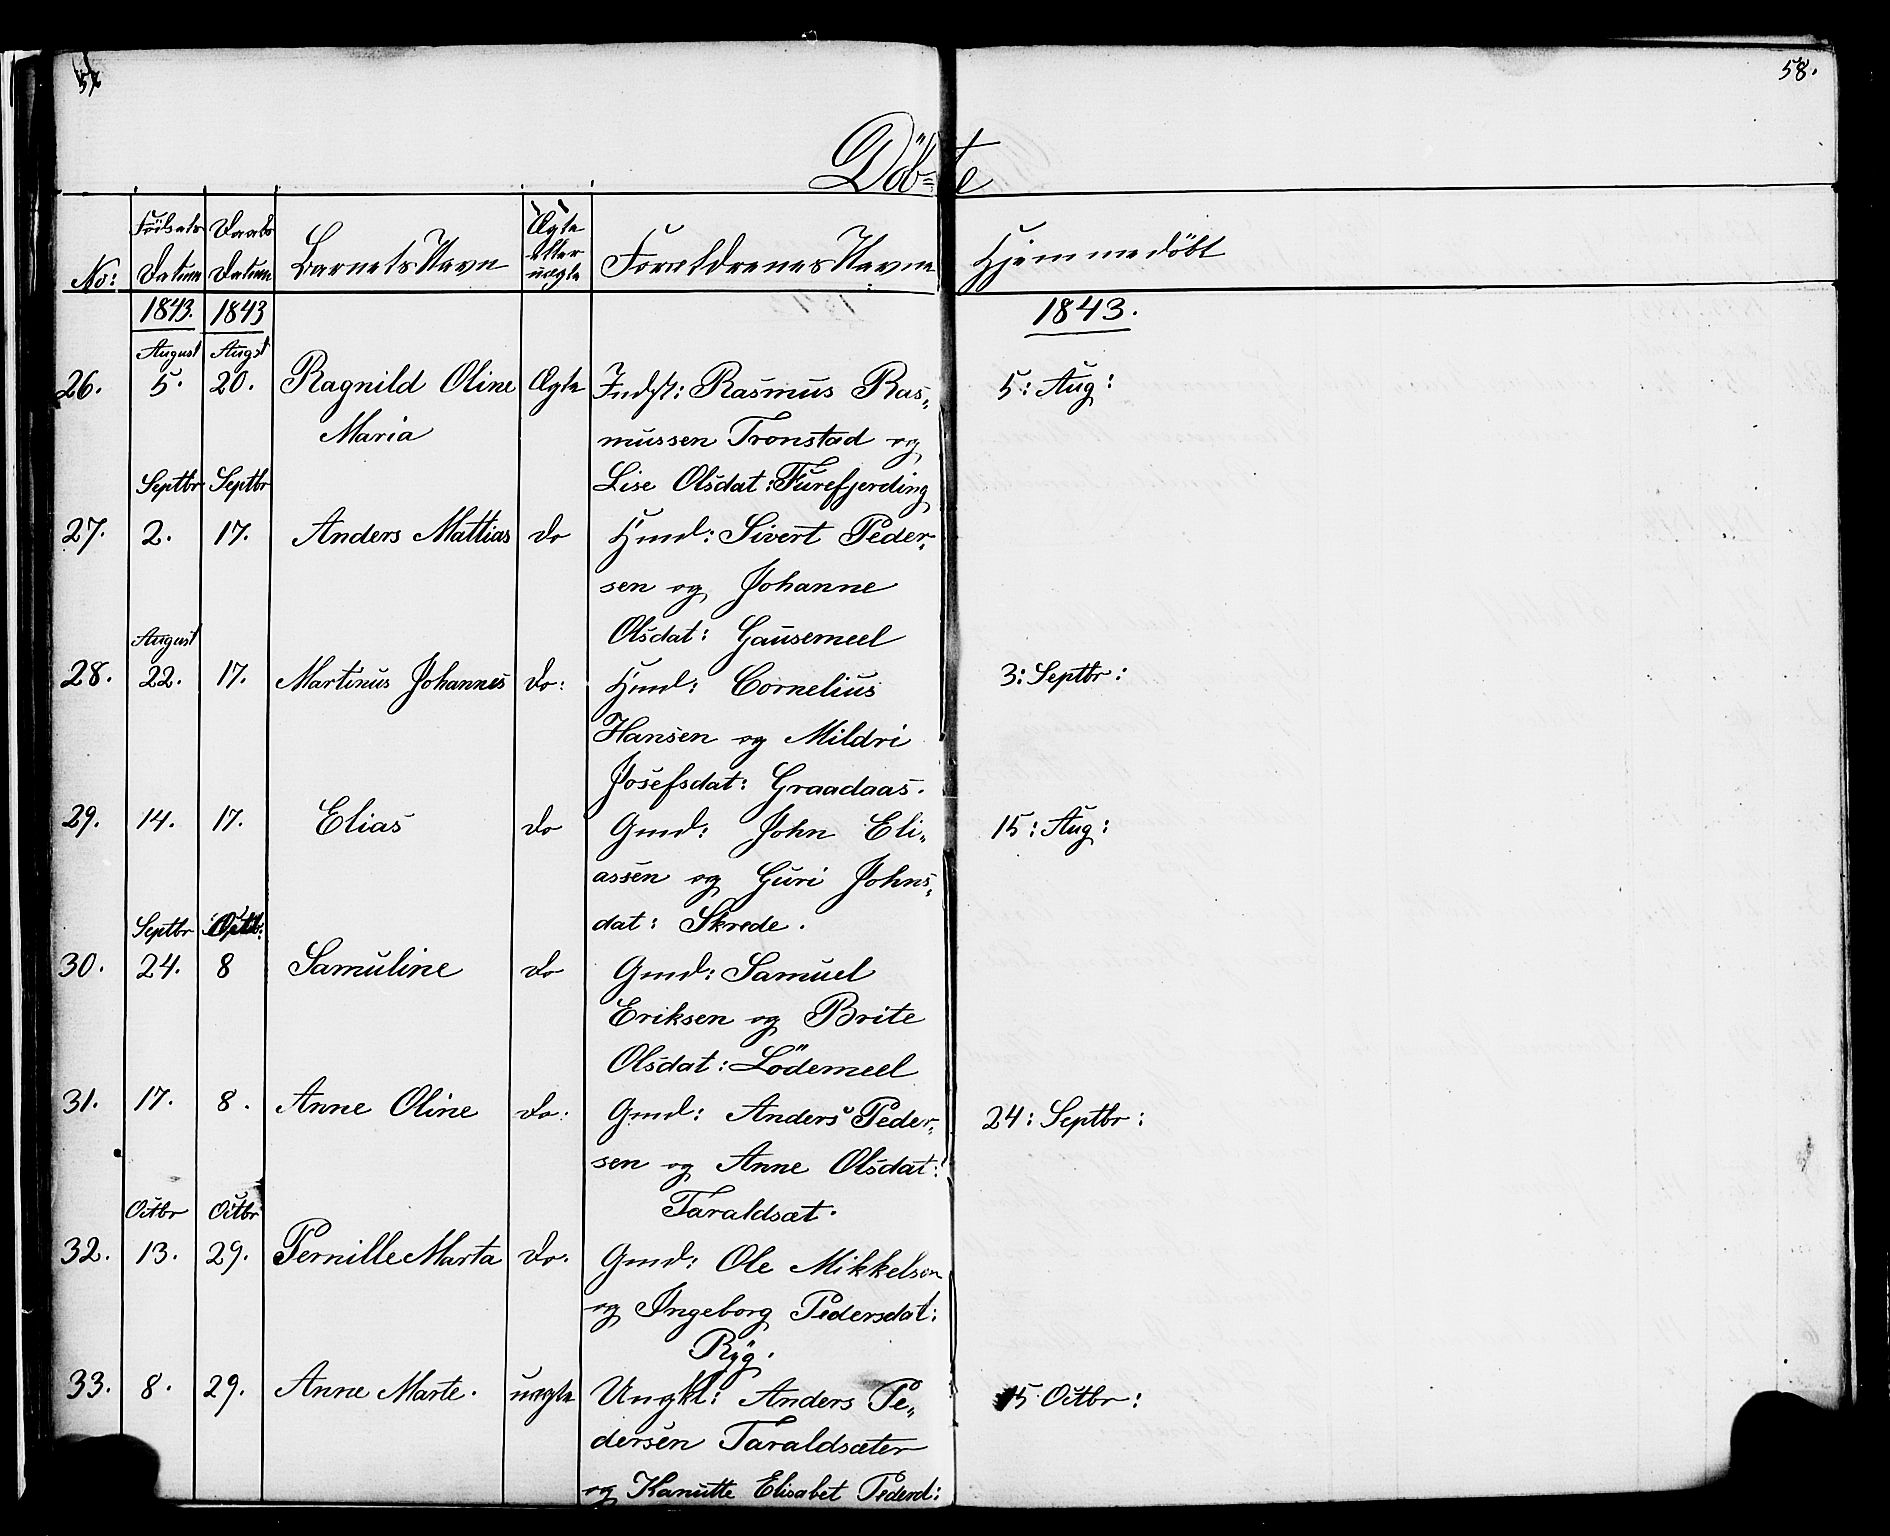 57
58.
Döb=te
No: Födsels Datum Daabs Datum Barnets Navn Ægte eller uægte Forældrenes Navne Hjemmedöbt
1843. 1843 1843.
August Augst
26. 5. 20. Ragnild Oline Ægte Indst: Rasmus Ras„ 5: Aug:
Maria mussen Tronstad og
Septbr Septbr Lise Olsdat: Furefjerding
27. 2. 17. Anders Mattias do Hmd: Sivert Peder„
sen og Johanne
August Olsdat: Gausemeel
28. 22. 17. Martinus Johannes do: Hmd: Cornelius 3: Septbr:
Hansen og Mildri
Josefsdat: Graadaas.
29. 14. 17. Elias do Gmd: John Eli„ 15: Aug:
assen og Guri Johns„
Septbr dat: Skrede.
30. 24. 8 Samuline do Gmd: Samuel
Eriksen og Brite
Olsdat: Lödemeel
31. 17. 8. Anne Oline do: Gmd: Anders Peder„ 24: Septbr:
sen og Anne Olsdat:
Octbr Octbr Taraldsæt.
32. 13. 29. Pernille Marta do. Gmd: Ole Mikkelsen
og Ingeborg Pedersdat:
Ryg.
33. 8. 29. Anne Marte. uægte Ungkl: Anders Pe„ 15 Octbr:
dersen Taraldsæter
og Kanutte Elisabet Pedersd: